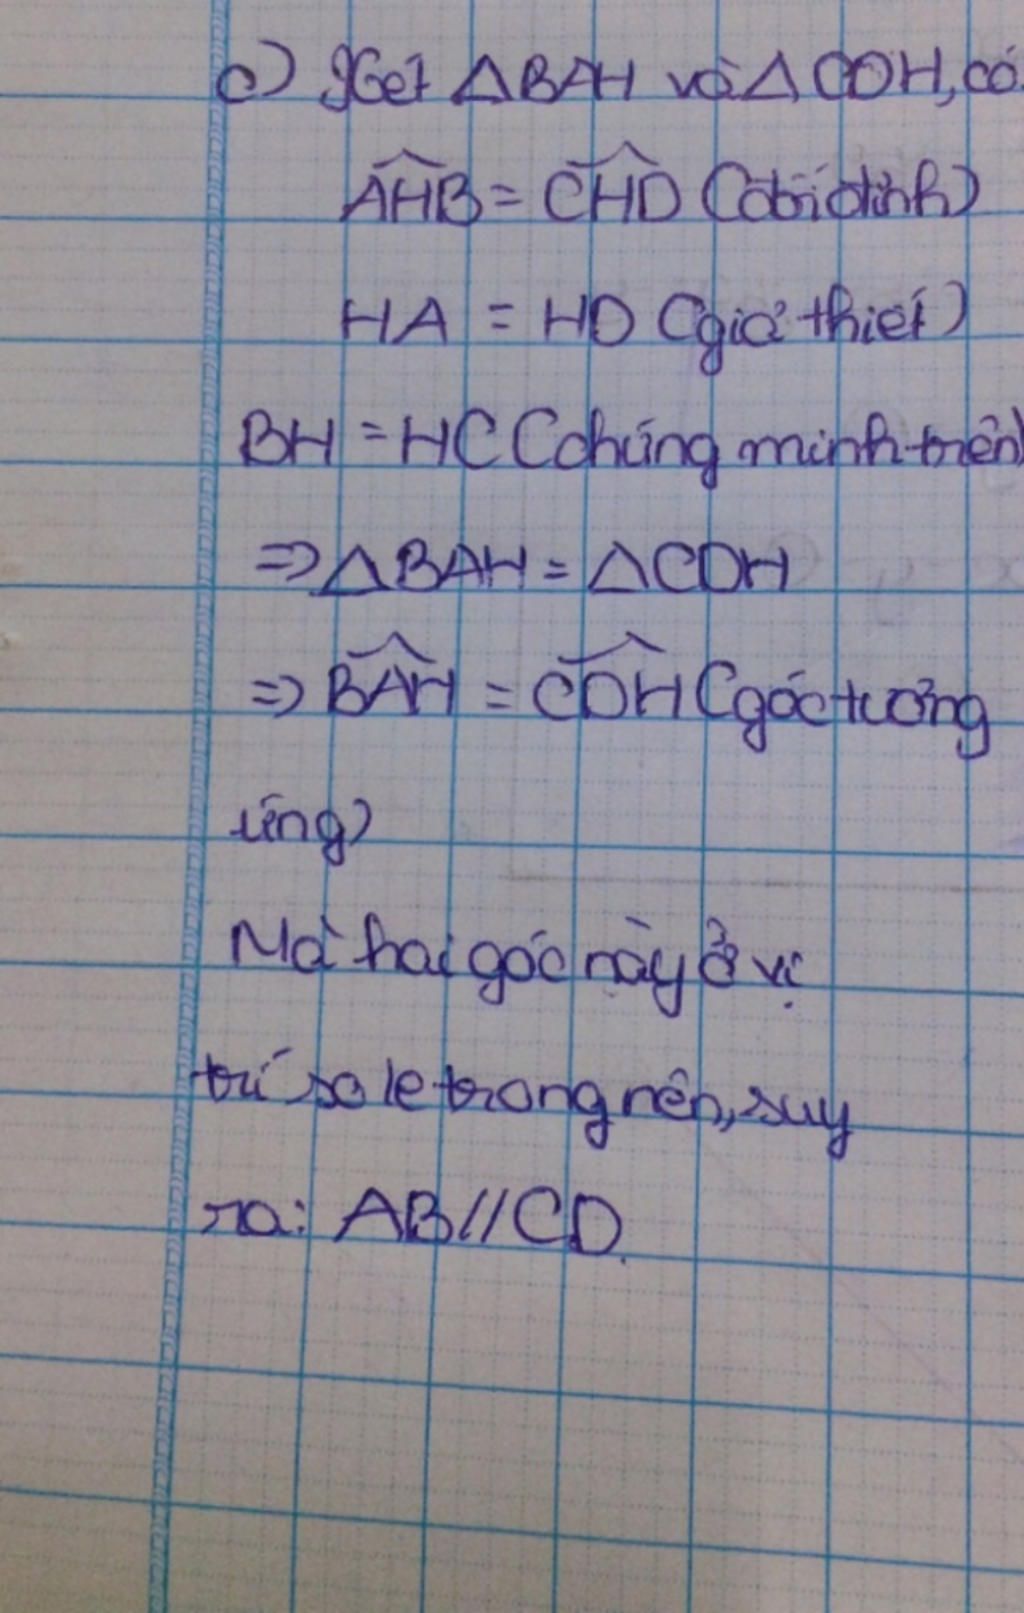 c) Xét △BAH và △CDH, có:
AHB = CHD (đối đỉnh)
HA = HD (giả thiết)
BH = HC (chứng minh trên)
=> △BAH = △CDH
=> BAH = CDH (góc tương
ứng)
Mà hai góc này ở vị
trí so le trong nên, suy
ra: AB // CD.